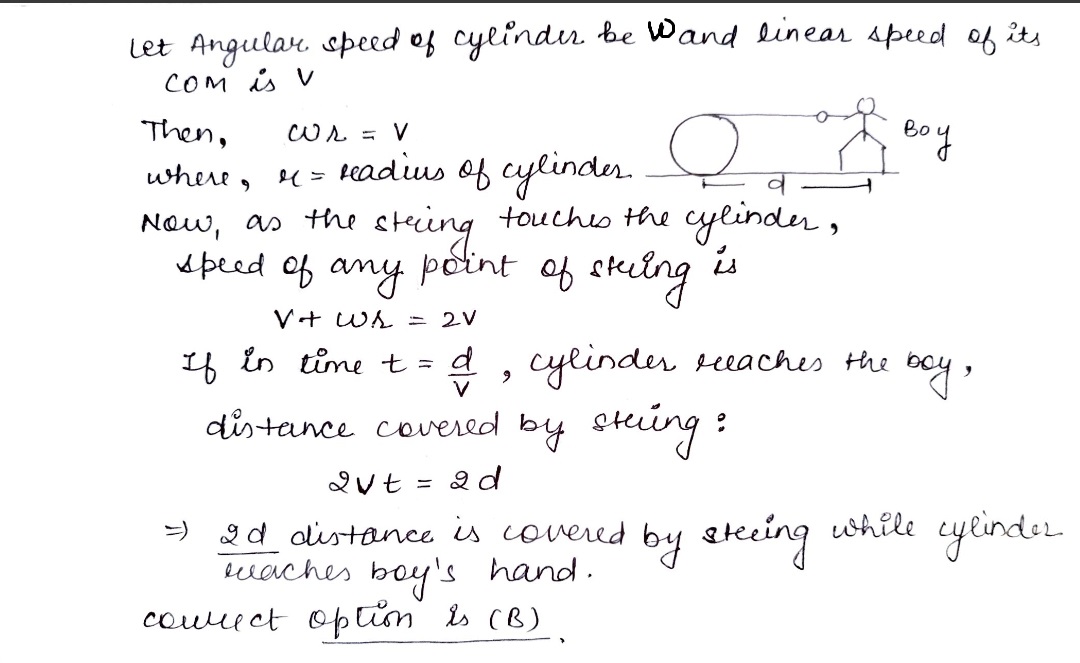 Let Angular speed of cylinder be W and linear speed of its
COM is V
Then, ωr = V
Boy
where, r = readius of cylinder.
d
Now, as the string touches the cylinder,
speed of any point of string is
V + ωr = 2V
If in time t = d/V, cylinder reaches the boy,
distance covered by string :
2Vt = 2d
⇒ 2d distance is covered by string while cylinder
reaches boy's hand.
correct option is (B).